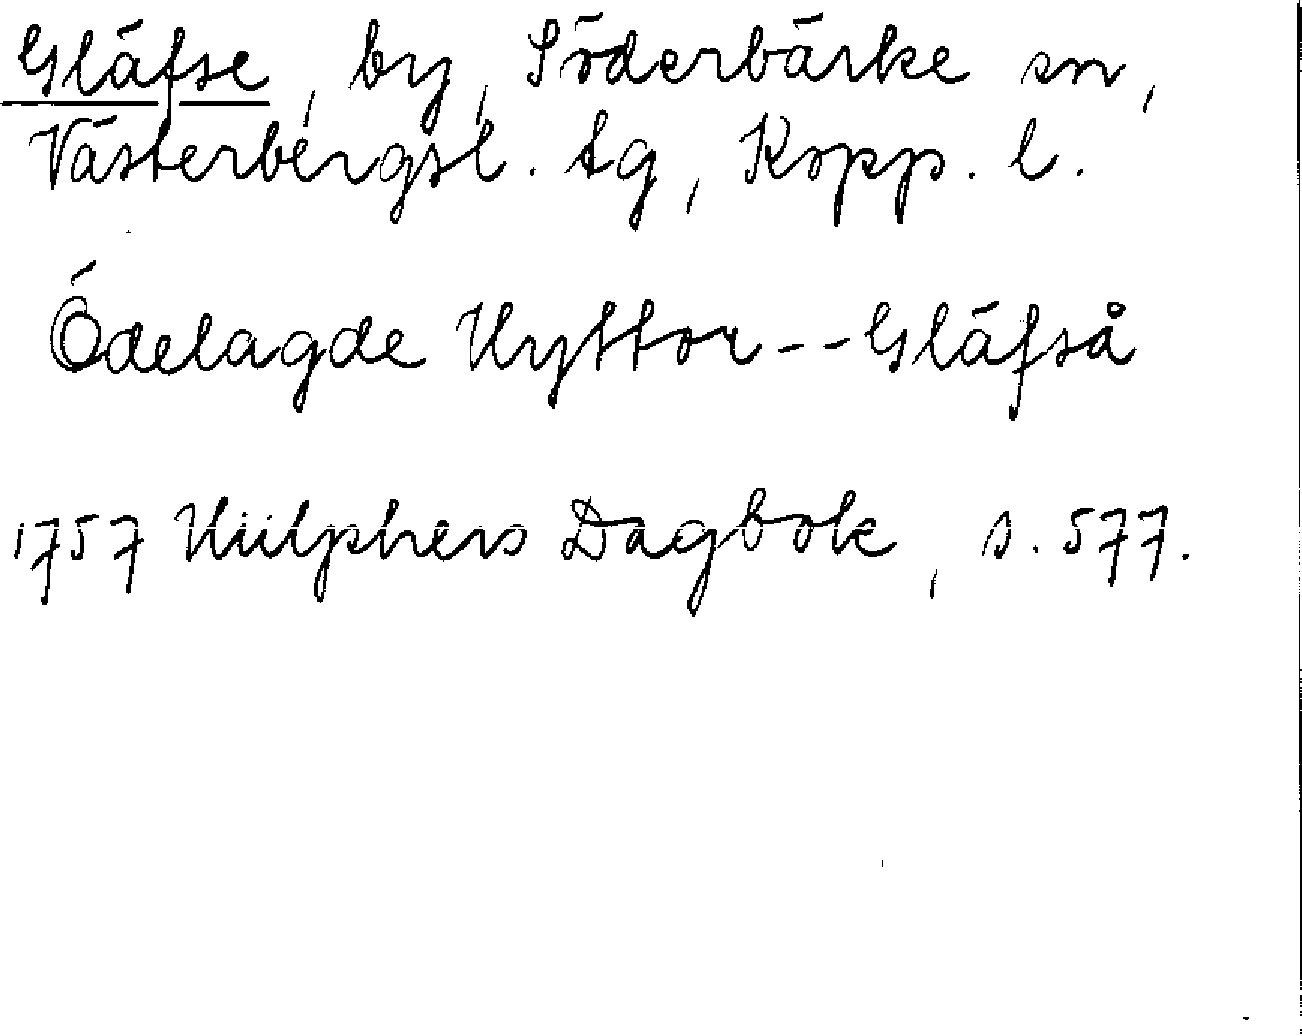 Gläfse, by, Söderbärke sn,
Västerbergsl. tg, Kopp. l.
Ödelagde Hyttor--Gläfså
1757 Hülphers Dagbok, s. 577.